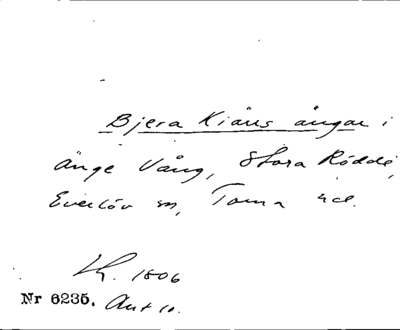 Bjera Kiärs ängar i
Änge Vång, Stora Röddé,
Everlöv sn, Torna hd.
Lk. 1806
Nr 6235. Akt 10.